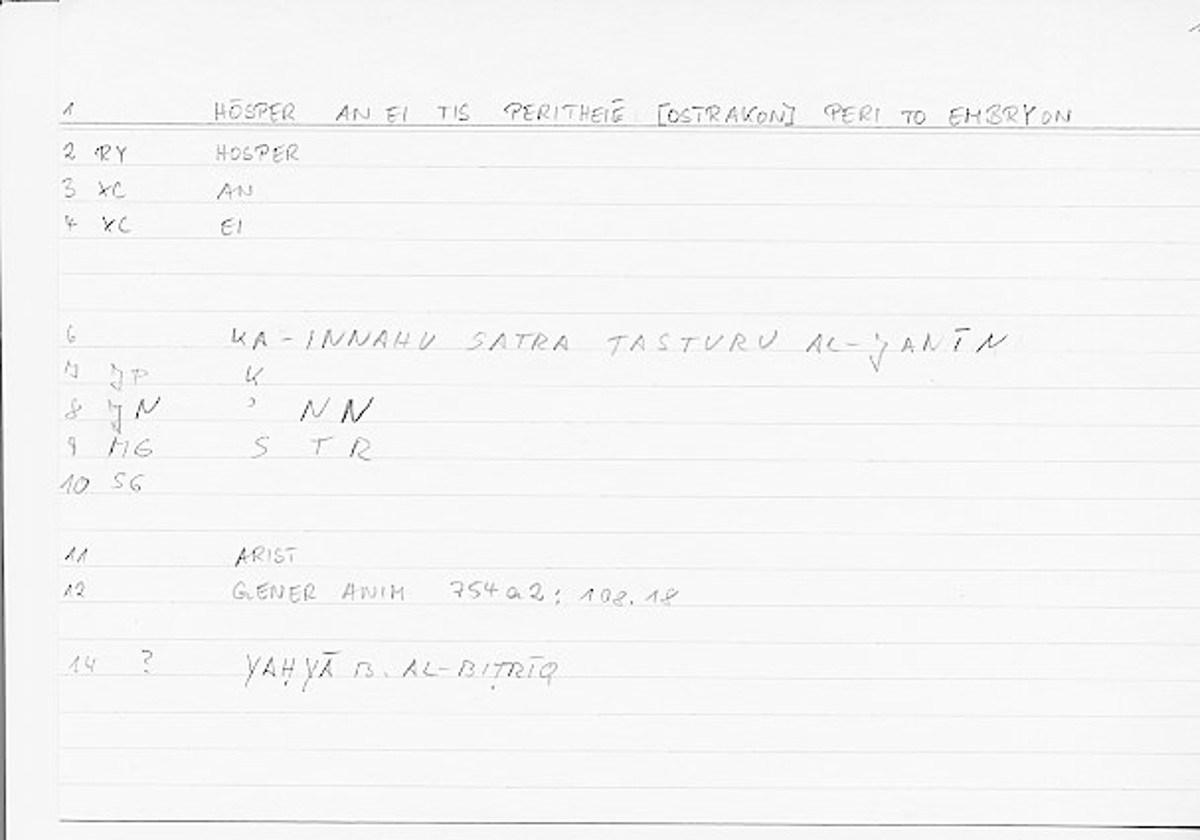 1 HŌSPER AN EI TIS PERITHEIĒ [OSTRAKON] PERI TO EMBRYON
2 RY HOSPER
3 XC AN
4 XC EI
6 KA-INNAHU SATRA TASTURU AL-JANĪN
7 JP K
8 JN ʾ NN
9 MG S T R
10 SG
11 ARIST
12 GENER ANIM 754a2; 108.18
14 ? YAḤYĀ B. AL-BIṬRĪQ